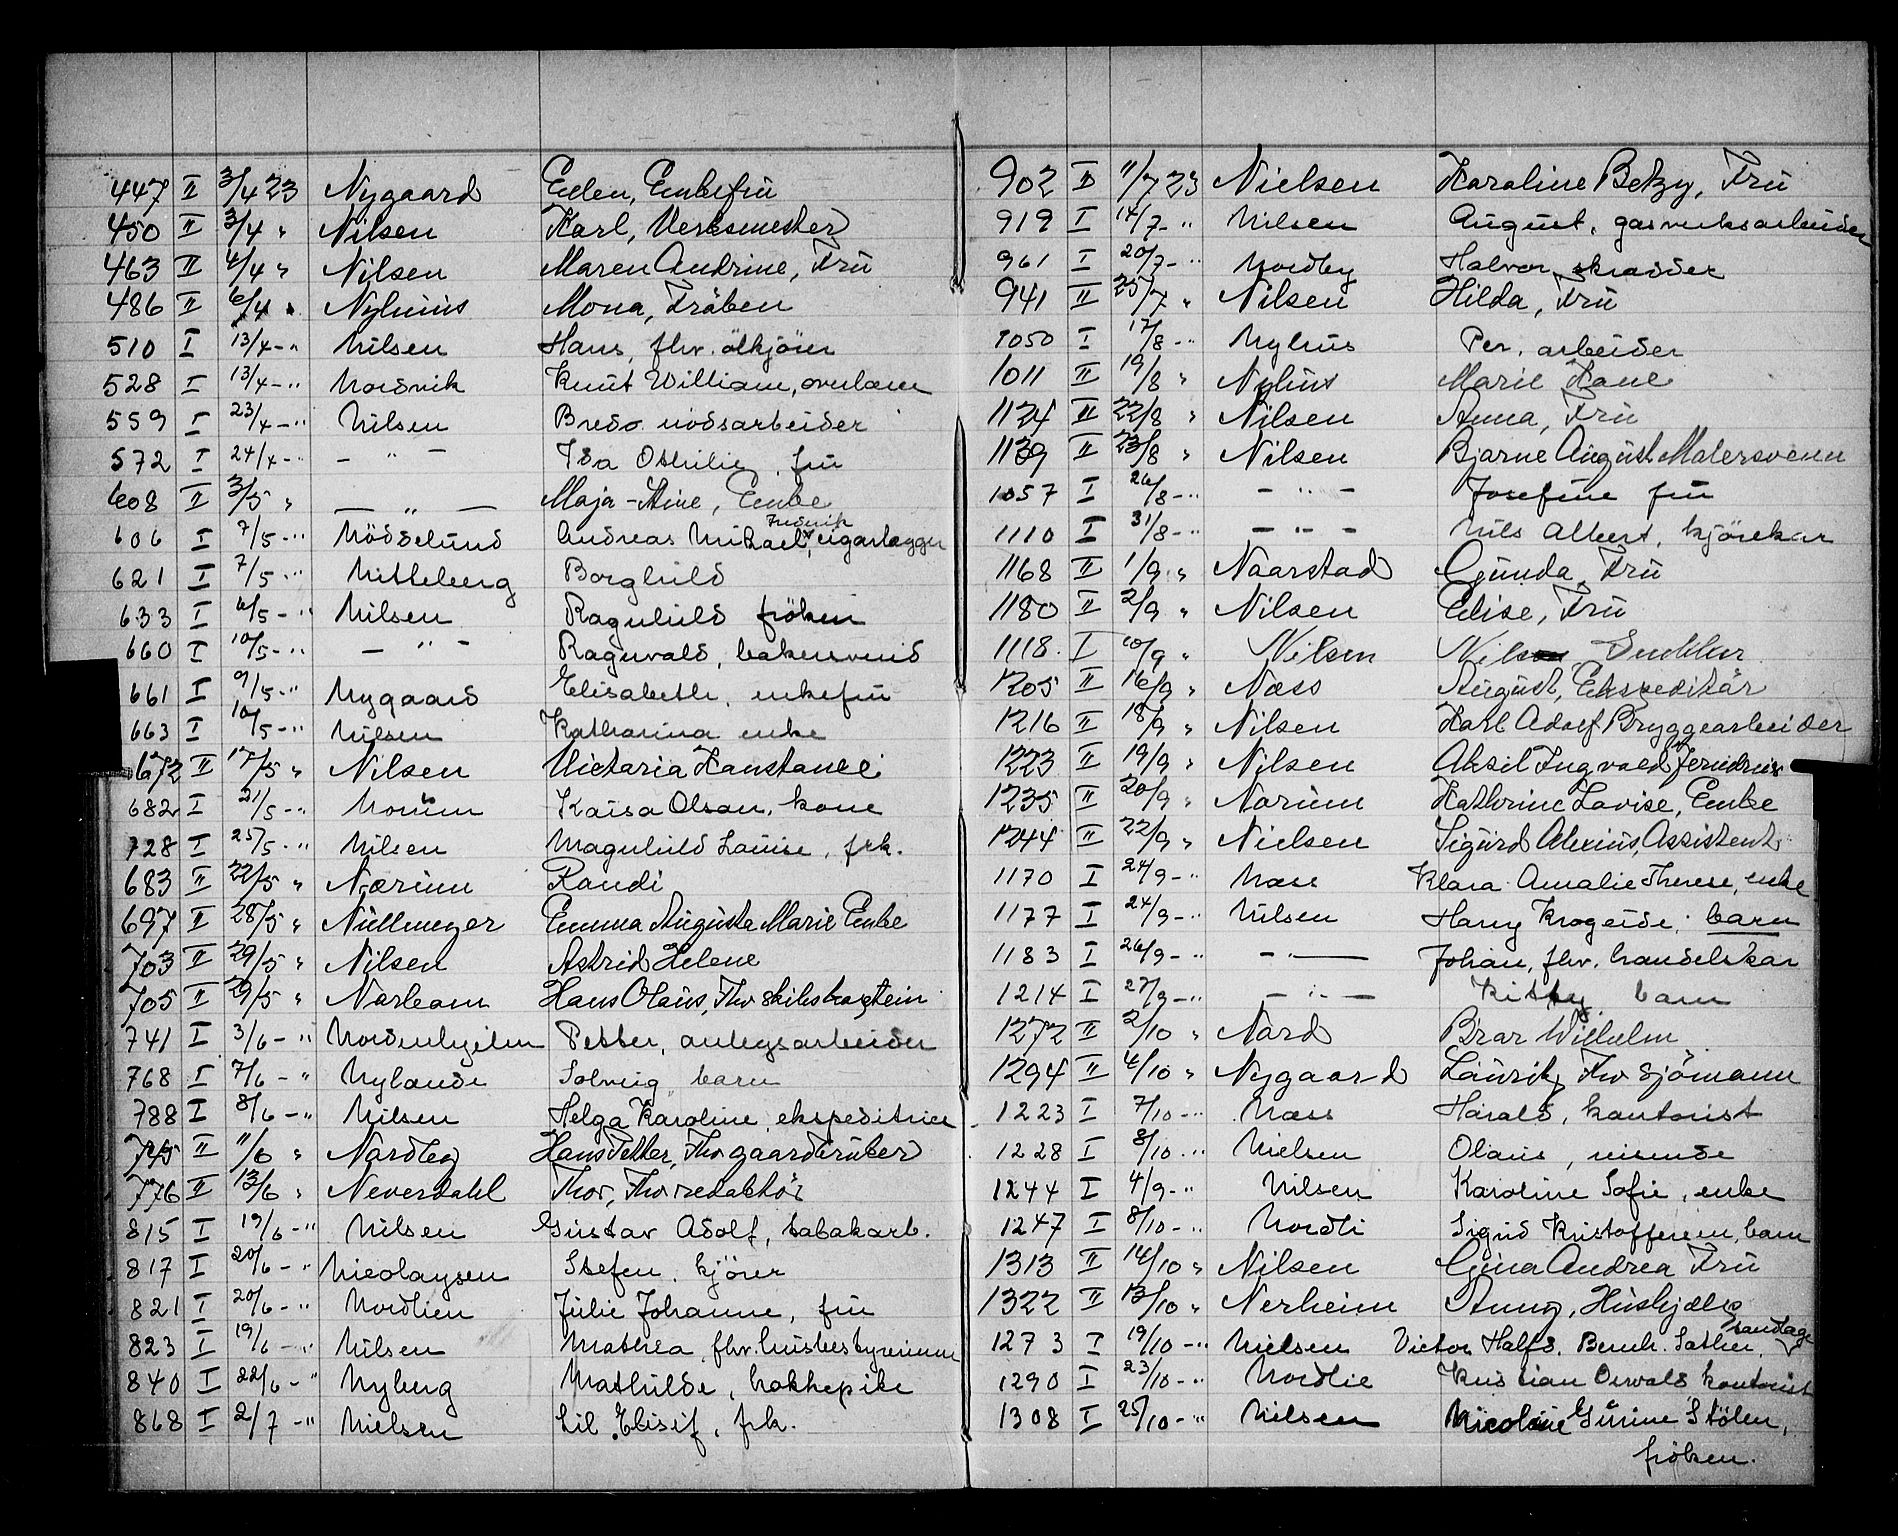 447 II 3/4 23 Nygaard Ellen, Enkefru
450 II 3/4 " Nilsen Karl, Verksmester
463 II 4/4 " Nilsen Maren Andrine, Fru
486 II 6/4 " Nyhuus Mona, Fröken
510 I 13/4 -" Nilsen Hans, fhv. ölkjörer
528 I 13/4 -" Nordvik Knut William, overlærer
559 I 23/4 -" Nilsen Bredo nödsarbeider
572 I 24/4 -" - " - Isa Othilie, fru
608 II 3/5 " - " - Maja-Stine, Enke
606 I 7/5 -" Nödselund Andreas Mikael Fredrik, cigarlægger
621 I 7/5 -" Nitteberg Borghild
633 I 6/5 -" Nilsen Ragnhild fröken
660 I 10/5 -" - " - Ragnvald, bakersvend
661 I 9/5 -" Nygaard Elisabeth, enkefru
663 I 10/5 -" Nilsen Katharina enke
672 II 17/5 " Nilsen Victaria Kanstance
682 I 21/5 -" Norum Kaisa Olsen, kone
728 I 25/5 -" Nilsen Magnhild Louise, frk.
683 II 22/5 " Nærum Randi
697 II 28/5 " Nullmeyer Emma Auguste Marie Enke
703 II 29/5 " Nilsen Astrid Helene
705 II 29/5 " Narleam Hans Olaus, Fhv
741 I 3/6 -" Nordenhjelm Petter, anlegsarbeider
768 I 7/6 -" Nylande Solveig barn
788 I 8/6 -" Nilsen Helga Karoline, ekspeditrice
745 II 11/6 " Nardby Hans Petter, Fhv gaardbruker
776 II 13/6 " Neverdahl Thor, Fhv redaktör
815 I 19/6 -" Nilsen Gustav Adolf, tobakarb.
817 I 20/6 -" Nicolaysen Stefen, kjörer
821 I 20/6 -" Nordlien Julie Johanne, fru
823 I 19/6 -" Nilsen Mathea, fhv. husbestyrerinne
840 I 22/6 -" Nyberg Mathilde, hokkepike
868 I 2/7 -" Nielsen Lil Elisif, frk.
902 II 11/7 23 Nielsen Karoline Betzy, Fru
919 I 14/7 -" Nilsen August, gasverksarbeider
961 I 20/7 -" Nordby Halvor, skrædder
941 II 25/7 " Nilsen Hilda, Fru
1050 I 17/8 -" Nyhus Per, arbeider
1011 II 19/8 " Nyhus Marie Kane
1124 II 22/8 " Nilsen Anna, Fru
1139 II 23/8 " Nilsen Bjarne August Malersvenn
1057 I 26/8 -" - " - Josefine fru
1110 I 31/8 -" - " - Nils Albert, kjörekar
1168 II 1/9 " Naarstad Gunda, Fru
1180 II 2/9 " Nilsen Elise, Fru
1118. I 10/9 " Nilsen Nils
1205 II 16/9 " Næss August, Ekspeditör
1216 II 18/9 " Nilsen Karl Adolf Bryggearbeider
1223 II 19/9 " Nilsen Aksel Ingvald
1235 II 20/9 " Narum Kathrine Lovise, Enke
1244 II 22/9 " Nielsen Sigurd Alexius, Assistent
1170 I 24/9 -" Næss Klara Amalie Therese, enke
1177 I 24/9 -" Nilsen Harry Krogeide, barn
1183 I 26/9 -" - " - Johan, fhv. handelskar
1214 I 27/9 -" - " - Kitty barn
1272 II 2/10 " Nard Brar Wilhelm
1294 II 4/10 " Nygaard Lauritz, Fhv sjömann
1223 I 7/10 -" Næss Harald, kontorist
1228 I 8/10 -" Nielsen Olaus, reisende
1244 I 4/9 -" Nilsen Karoline Sofie, enke
1247 I 8/10 -" Nordli Sigrid Kristoffersen, barn
1313 II 14/10 " Nilsen Gina Andrea Fru
1322 II 13/10 " Nerheim Anny, Hushjælp
1273 I 19/10 -" Nielsen Victor Halfd. Bernh. Sather,
1290 I 23/10 -" Nordlie Kristian Osvald kontorist
1308 I 25/10 -" Nilsen Nicoline Gurine Stölen,
fröken.